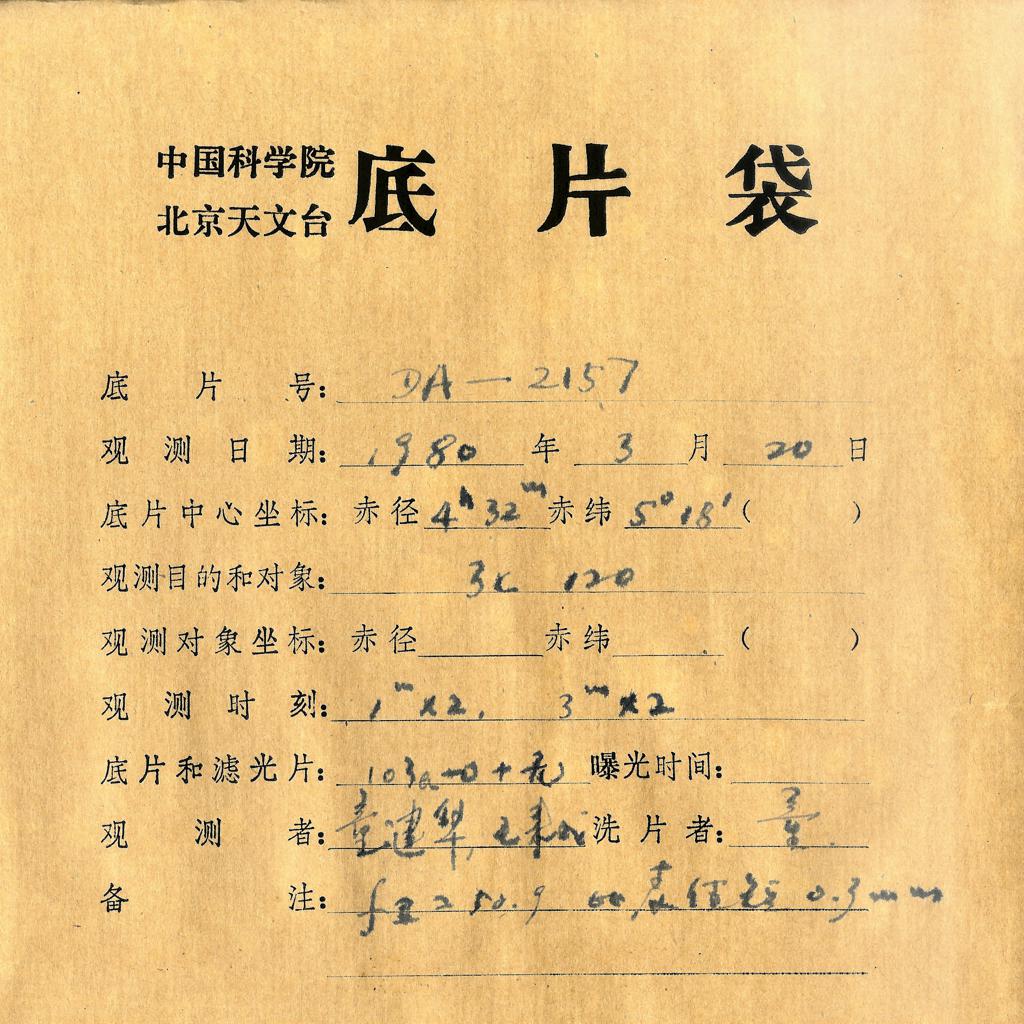 中国科学院
北京天文台
底片袋
底片号: DA-2157
观测日期: 1980 年 3 月 20 日
底片中心坐标: 赤径 4h 32m 赤纬 5° 18′ ( )
观测目的和对象: 3C 120
观测对象坐标: 赤径 赤纬 ( )
观测时刻: 1m×2, 3m×2
底片和滤光片: 103a-O+无 曝光时间:
观测者: 童建华, 洗片者: 童
备注: f = 50.9 0.3mm